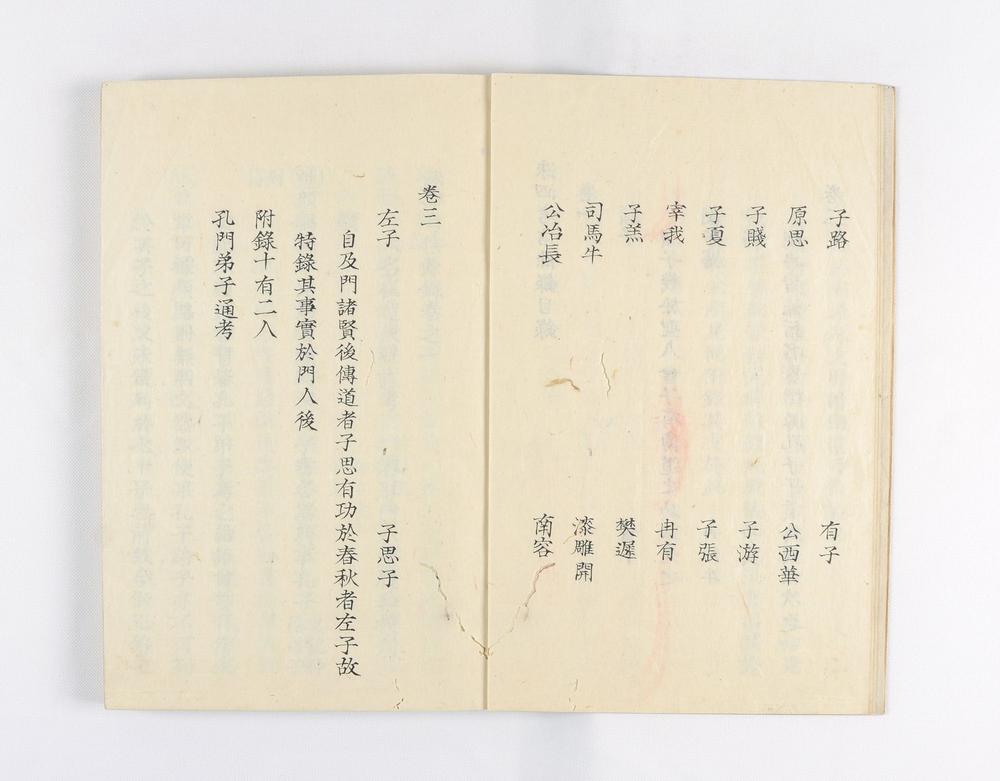 子路 有子
原思 公西華
子賤 子游
子夏 子張
宰我 冉有
子羔 樊遲
司馬牛 漆雕開
公冶長 南容
卷三
左子 子思子
自及門諸賢後傳道者子思有功於春秋者左子故
特錄其事實於門人後
附錄十有二人
孔門弟子通考